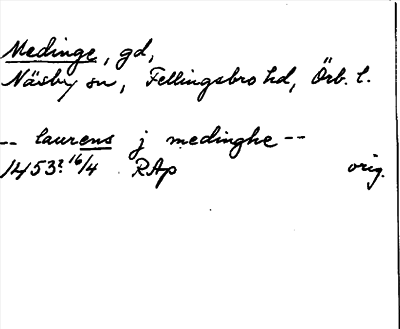 Medinge, gd,
Näsby sn, Fellingsbro hd, Örb. l.
-- laurens j medinghe --
1453? 16/4 RAp orig.